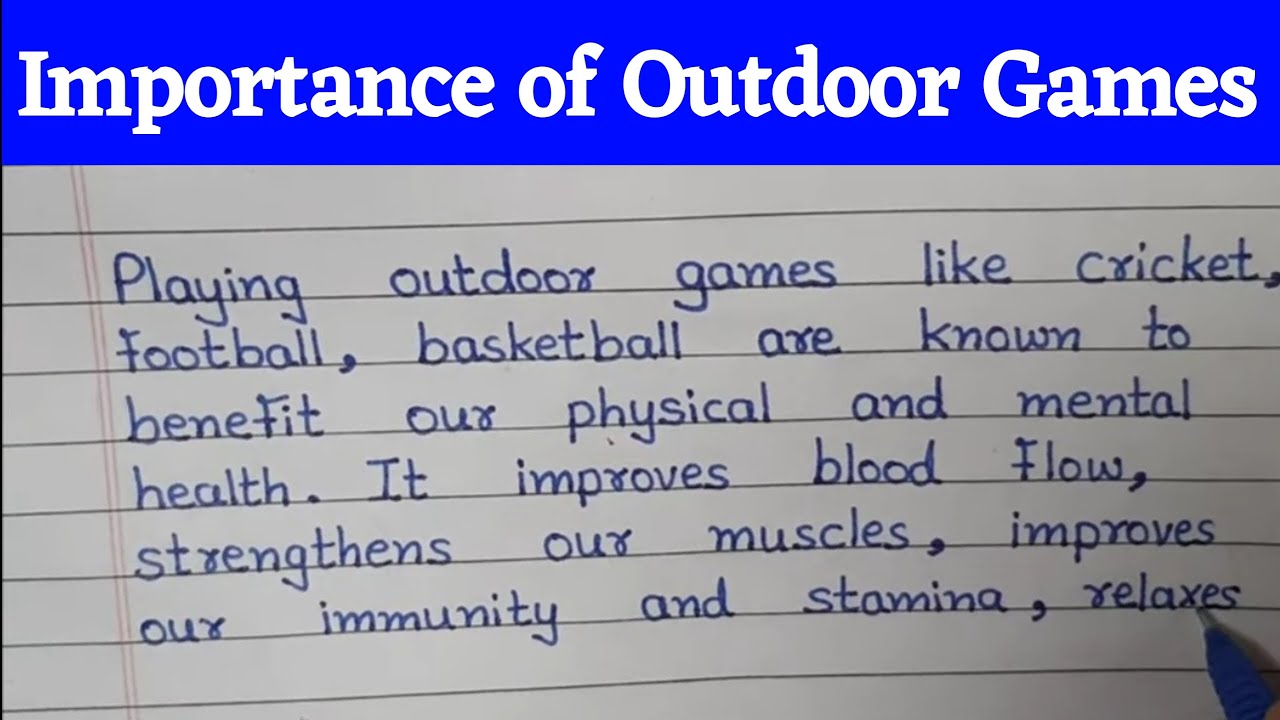 Importance of Outdoor Games
Playing outdoor games like cricket,
football, basketball are known to
benefit our physical and mental
health. It improves blood flow,
strengthens our muscles, improves
our immunity and stamina, relaxes